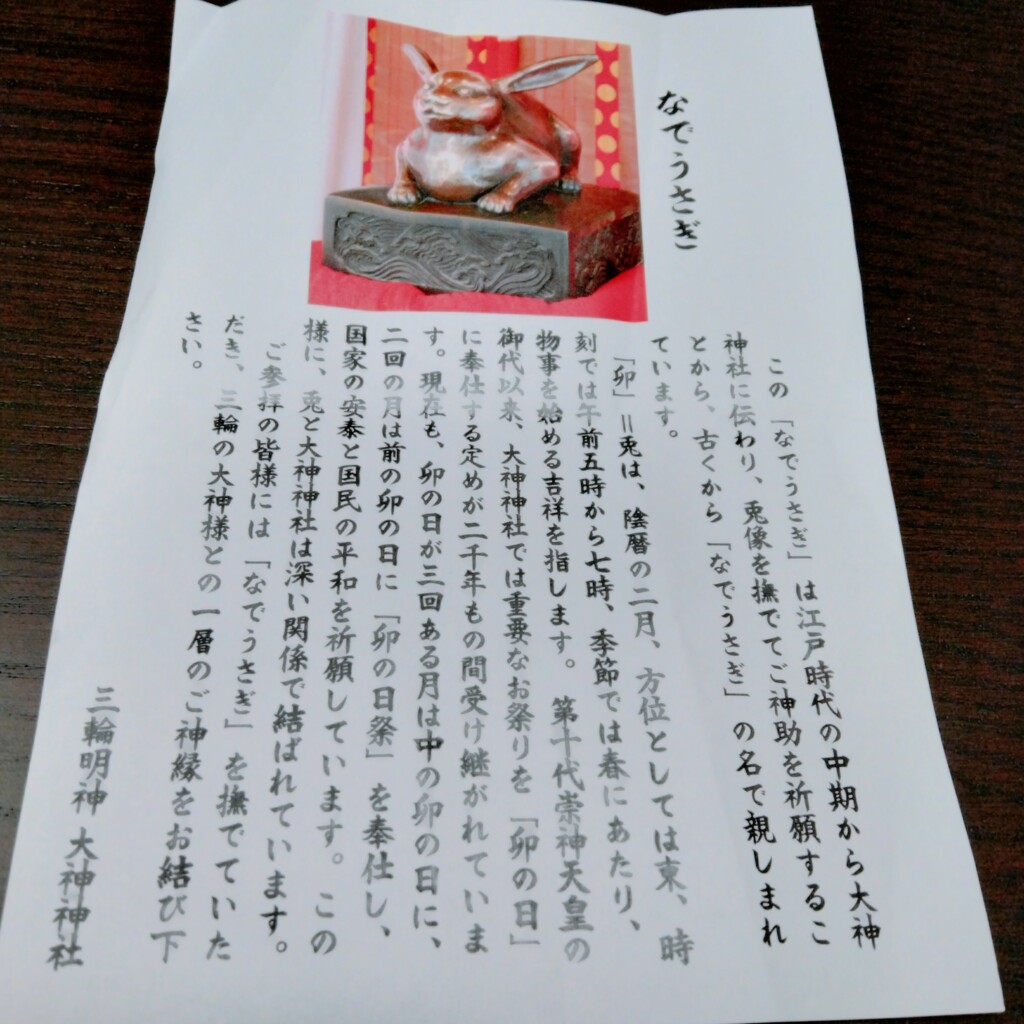 なでうさぎ
この「なでうさぎ」は江戸時代の中期から大神
神社に伝わり、兎像を撫でてご神助を祈願するこ
とから、古くから「なでうさぎ」の名で親しまれ
ています。
「卯」＝兎は、陰暦の二月、方位としては東、時
刻では午前五時から七時、季節では春にあたり、
物事を始める吉祥を指します。第十代崇神天皇の
御代以来、大神神社では重要なお祭りを「卯の日」
に奉仕する定めが二千年もの間受け継がれていま
す。現在も、卯の日が三回ある月は中の卯の日に、
二回の月は前の卯の日に「卯の日祭」を奉仕し、
国家の安泰と国民の平和を祈願しています。この
様に、兎と大神神社は深い関係で結ばれています。
ご参拝の皆様には「なでうさぎ」を撫でていた
だき、三輪の大神様との一層のご神縁をお結び下
さい。
三輪明神 大神神社